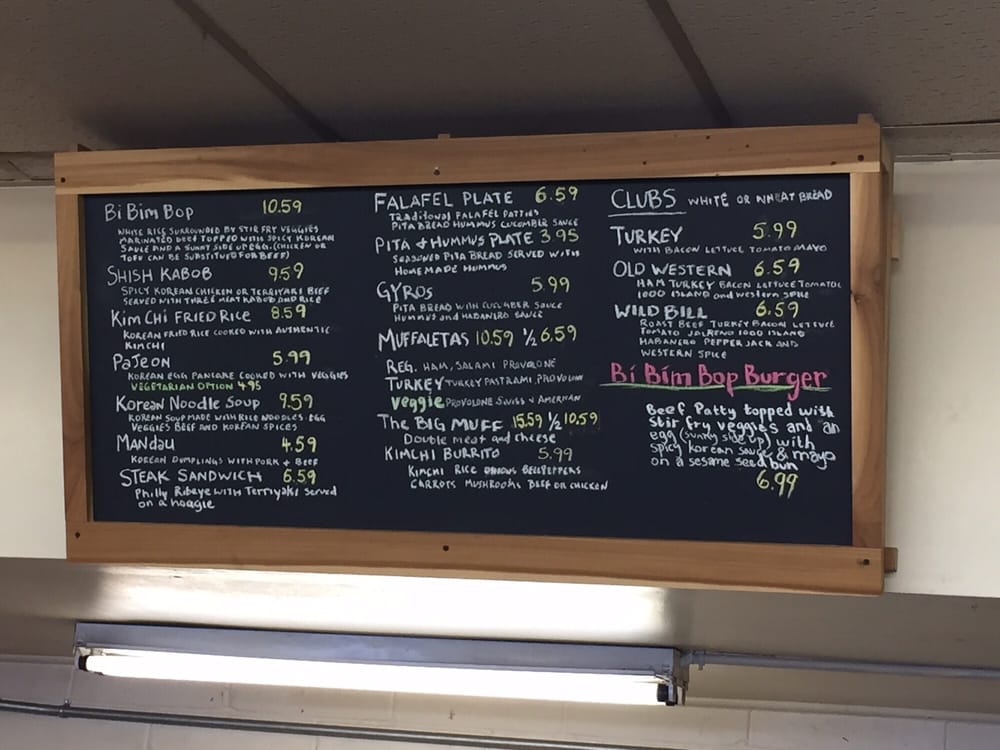 Bi Bim Bop 10.59
WHITE RICE SURROUNDED BY STIR FRY VEGGIES
MARINATED BEEF TOPPED WITH SPICY KOREAN
SAUCE AND A SUNNY SIDE UP EGG. (CHICKEN OR
TOFU CAN BE SUBSTITUTED FOR BEEF)
SHISH KABOB 9.59
SPICY KOREAN CHICKEN OR TERRIYAKI BEEF
SERVED WITH THREE MEAT KABOB AND RICE
Kim Chi FRIED RICE 8.59
KOREAN FRIED RICE COOKED WITH AUTHENTIC
KIMCHI
PaJeon 5.99
KOREAN EGG PANCAKE COOKED WITH VEGGIES
VEGETARIAN OPTION 4.95
Korean Noodle Soup 9.59
KOREAN SOUP MADE WITH RICE NOODLES, EGG
VEGGIES BEEF AND KOREAN SPICES
MANDau 4.59
KOREAN DUMPLINGS WITH PORK + BEEF
STEAK SANDWICH 6.59
Philly Ribeye with Terriyaki served
on a hoagie
FALAFEL PLATE 6.59
TRADITIONAL FALAFEL PATTIES
PITA BREAD HUMMUS CUCUMBER SAUCE
PITA + HUMMUS PLATE 3.95
SEASONED PITA BREAD SERVED WITH
HOMEMADE HUMMUS
GYROS 5.99
PITA BREAD WITH CUCUMBER SAUCE
HUMMUS AND HABANERO SAUCE
MUFFALETAS 10.59 ½ 6.59
REG. HAM, SALAMI PROVOLONE
TURKEY TURKEY PASTRAMI, PROVOLONE
Veggie PROVOLONE SWISS + AMERICAN
The BIG MUFF 15.59 ½ 10.59
Double meat and cheese
KIMCHI BURRITO 5.99
KIMCHI RICE ONIONS BELLPEPPERS
CARROTS MUSHROOMS BEEF OR CHICKEN
CLUBS WHITE OR WHEAT BREAD
TURKEY 5.99
WITH BACON LETTUCE TOMATO MAYO
OLD WESTERN 6.59
HAM TURKEY BACON LETTUCE TOMATOE
1000 ISLAND and western SPICE
WILD BILL 6.59
ROAST BEEF TURKEY BACON LETTUCE
TOMATO JALAPENO 1000 ISLAND
HABANERO PEPPER JACK AND
WESTERN SPICE
Bi Bim Bop Burger
Beef Patty topped with
stir fry veggies and an
egg (sunny side up) with
spicy korean sauce & mayo
on a sesame seed bun
6.99